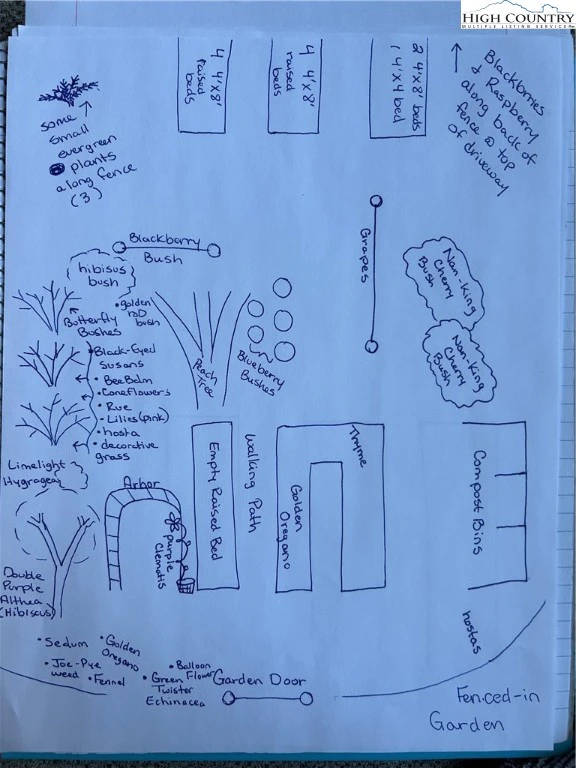 HIGH COUNTRY
MULTIPLE LISTING SERVICE
4 4'x8'
raised
beds
4 4'x8'
raised
beds
2 4'x8' beds
1 4'x4 bed
Blackberries
& Raspberry
along back of
fence @ top
of driveway
some
small
evergreen
plants
along fence
(3)
Blackberry
Bush
hibisus
bush
golden
rod
bush
Butterfly
Bushes
• Black-Eyed
Susans
• BeeBalm
• Coneflowers
• Rue
- Lilies (pink)
• hosta
• decorative
grass
Peach
Tree
Blueberry
Bushes
Grapes
Nan-king
Cherry
Bush
Nan-king
Cherry
Bush
Limelight
Hygragea
Arbor
purple
Clematis
Empty Raised Bed
Walking Path
Golden
Oregano
Thyme
Compost Bins
Double
Purple
Althea
(Hibiscus)
• Sedum
• Golden
Oregano
• Joe-Pye
weed
• Fennel
• Balloon
Flower
• Green
Twister
Echinacea
Garden Door
hostas
Fenced-in
Garden